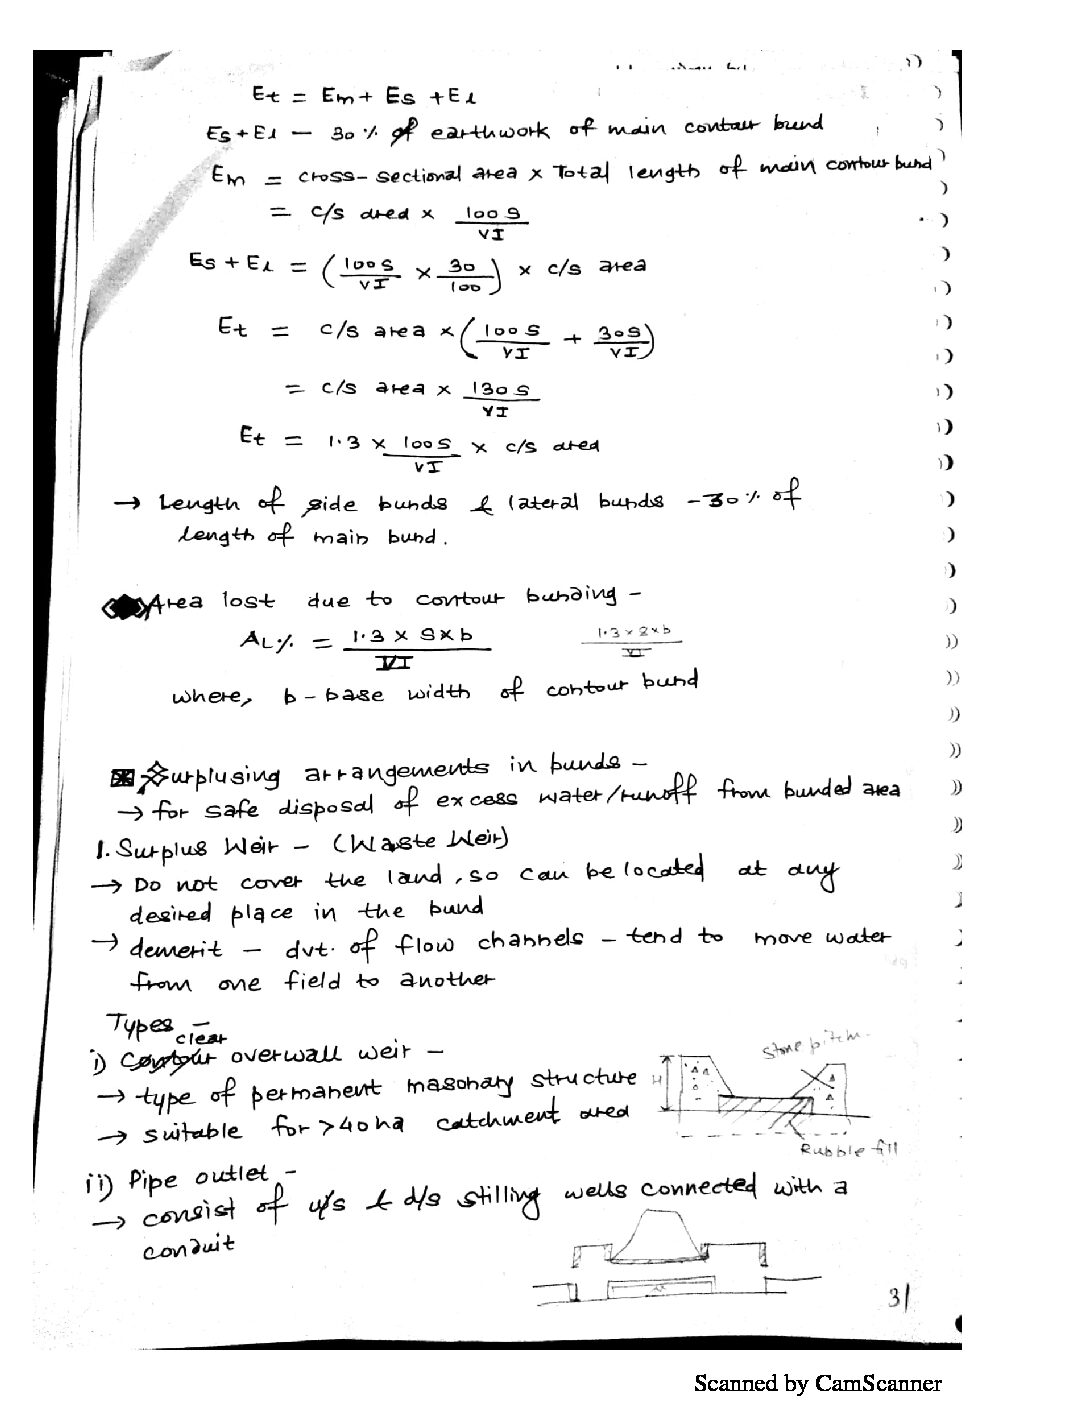 Et = Em + Es + El
Es + El – 30% of earthwork of main contour bund
Em = cross-sectional area x Total length of main contour bund
= c/s area x 100 S / VI
Es + El = (100 S / VI x 30 / 100) x c/s area
Et = c/s area x (100 S / VI + 30 S / VI)
= c/s area x 130 S / VI
Et = 1.3 x 100 S / VI x c/s area
→ Length of side bunds & lateral bunds - 30% of
length of main bund.
Area lost due to contour bunding –
AL% = 1.3 x S x b / VI 1.3 x S x b / VI
where, b - base width of contour bund
Surplusing arrangements in bunds –
→ for safe disposal of excess water/runoff from bunded area
1. Surplus Weir – (Waste Weir)
→ Do not cover the land, so can be located at any
desired place in the bund
→ demerit – dvt. of flow channels – tend to move water
from one field to another
Types –
i) clear overwall weir –
→ type of permanent masonary structure
→ suitable for >40ha catchment area
stone pitch.
H
Rubble fill
ii) Pipe outlet –
→ consist of u/s & d/s stilling wells connected with a
conduit
31
Scanned by CamScanner